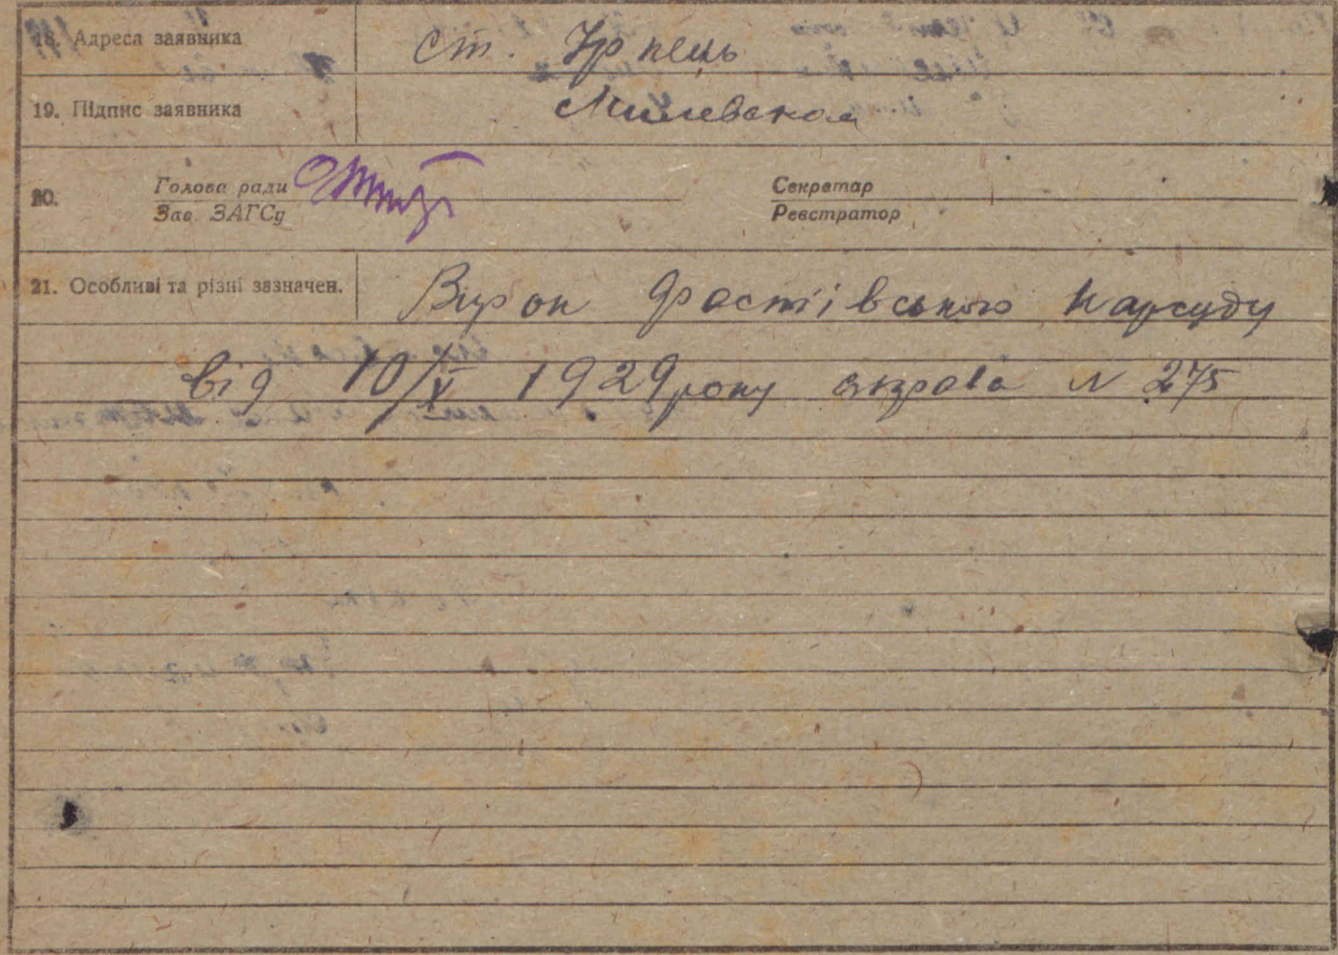 18. Адреса заявника ст. Ірпець
19. Підпис заявника Милевская
20. Голова ради Секретар
Зав. ЗАГСу Реєстратор
21. Особливі та різні зазначен. Вирок Фастівського Нарсуду
від 10/V 1929 року справа N 275